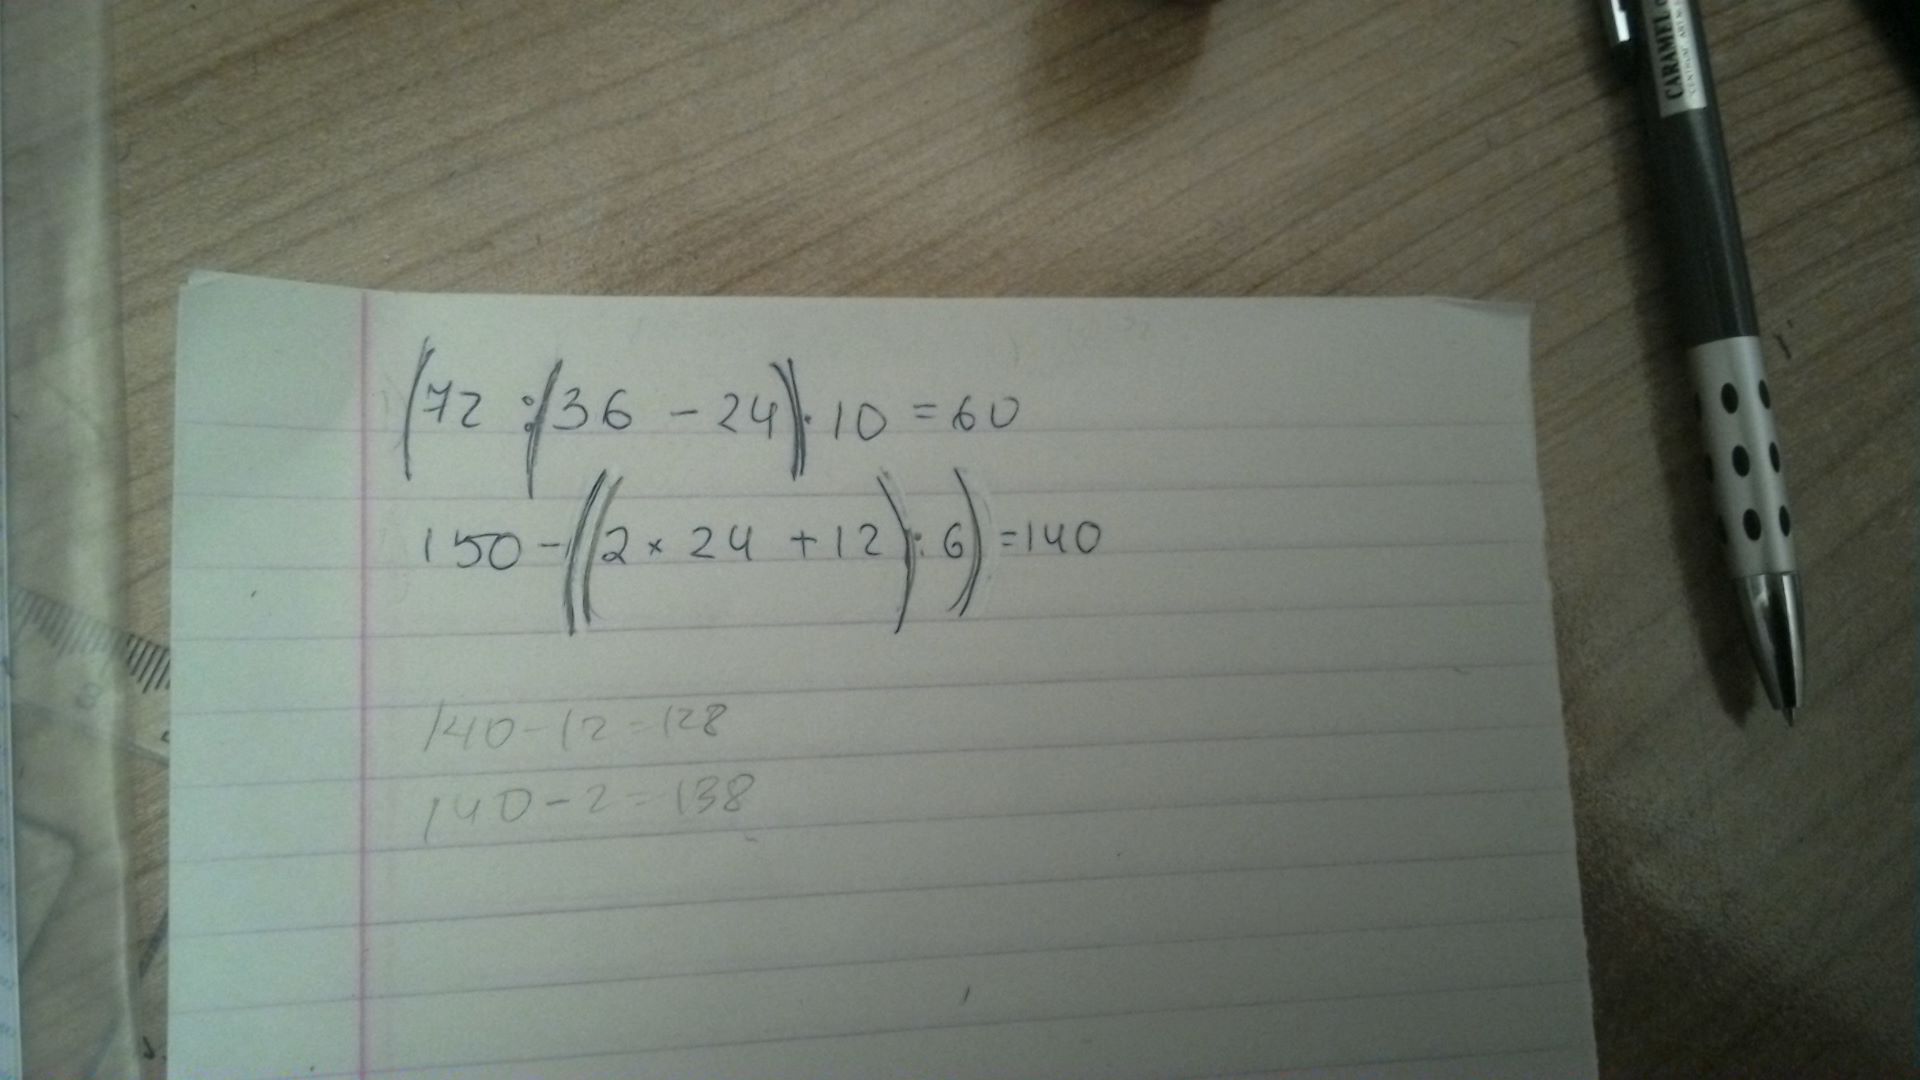 CARAMEL
(72 : (36 - 24)) · 10 = 60
150 - ((2 × 24 + 12) : 6) = 140
140 - 12 = 128
140 - 2 = 138
8